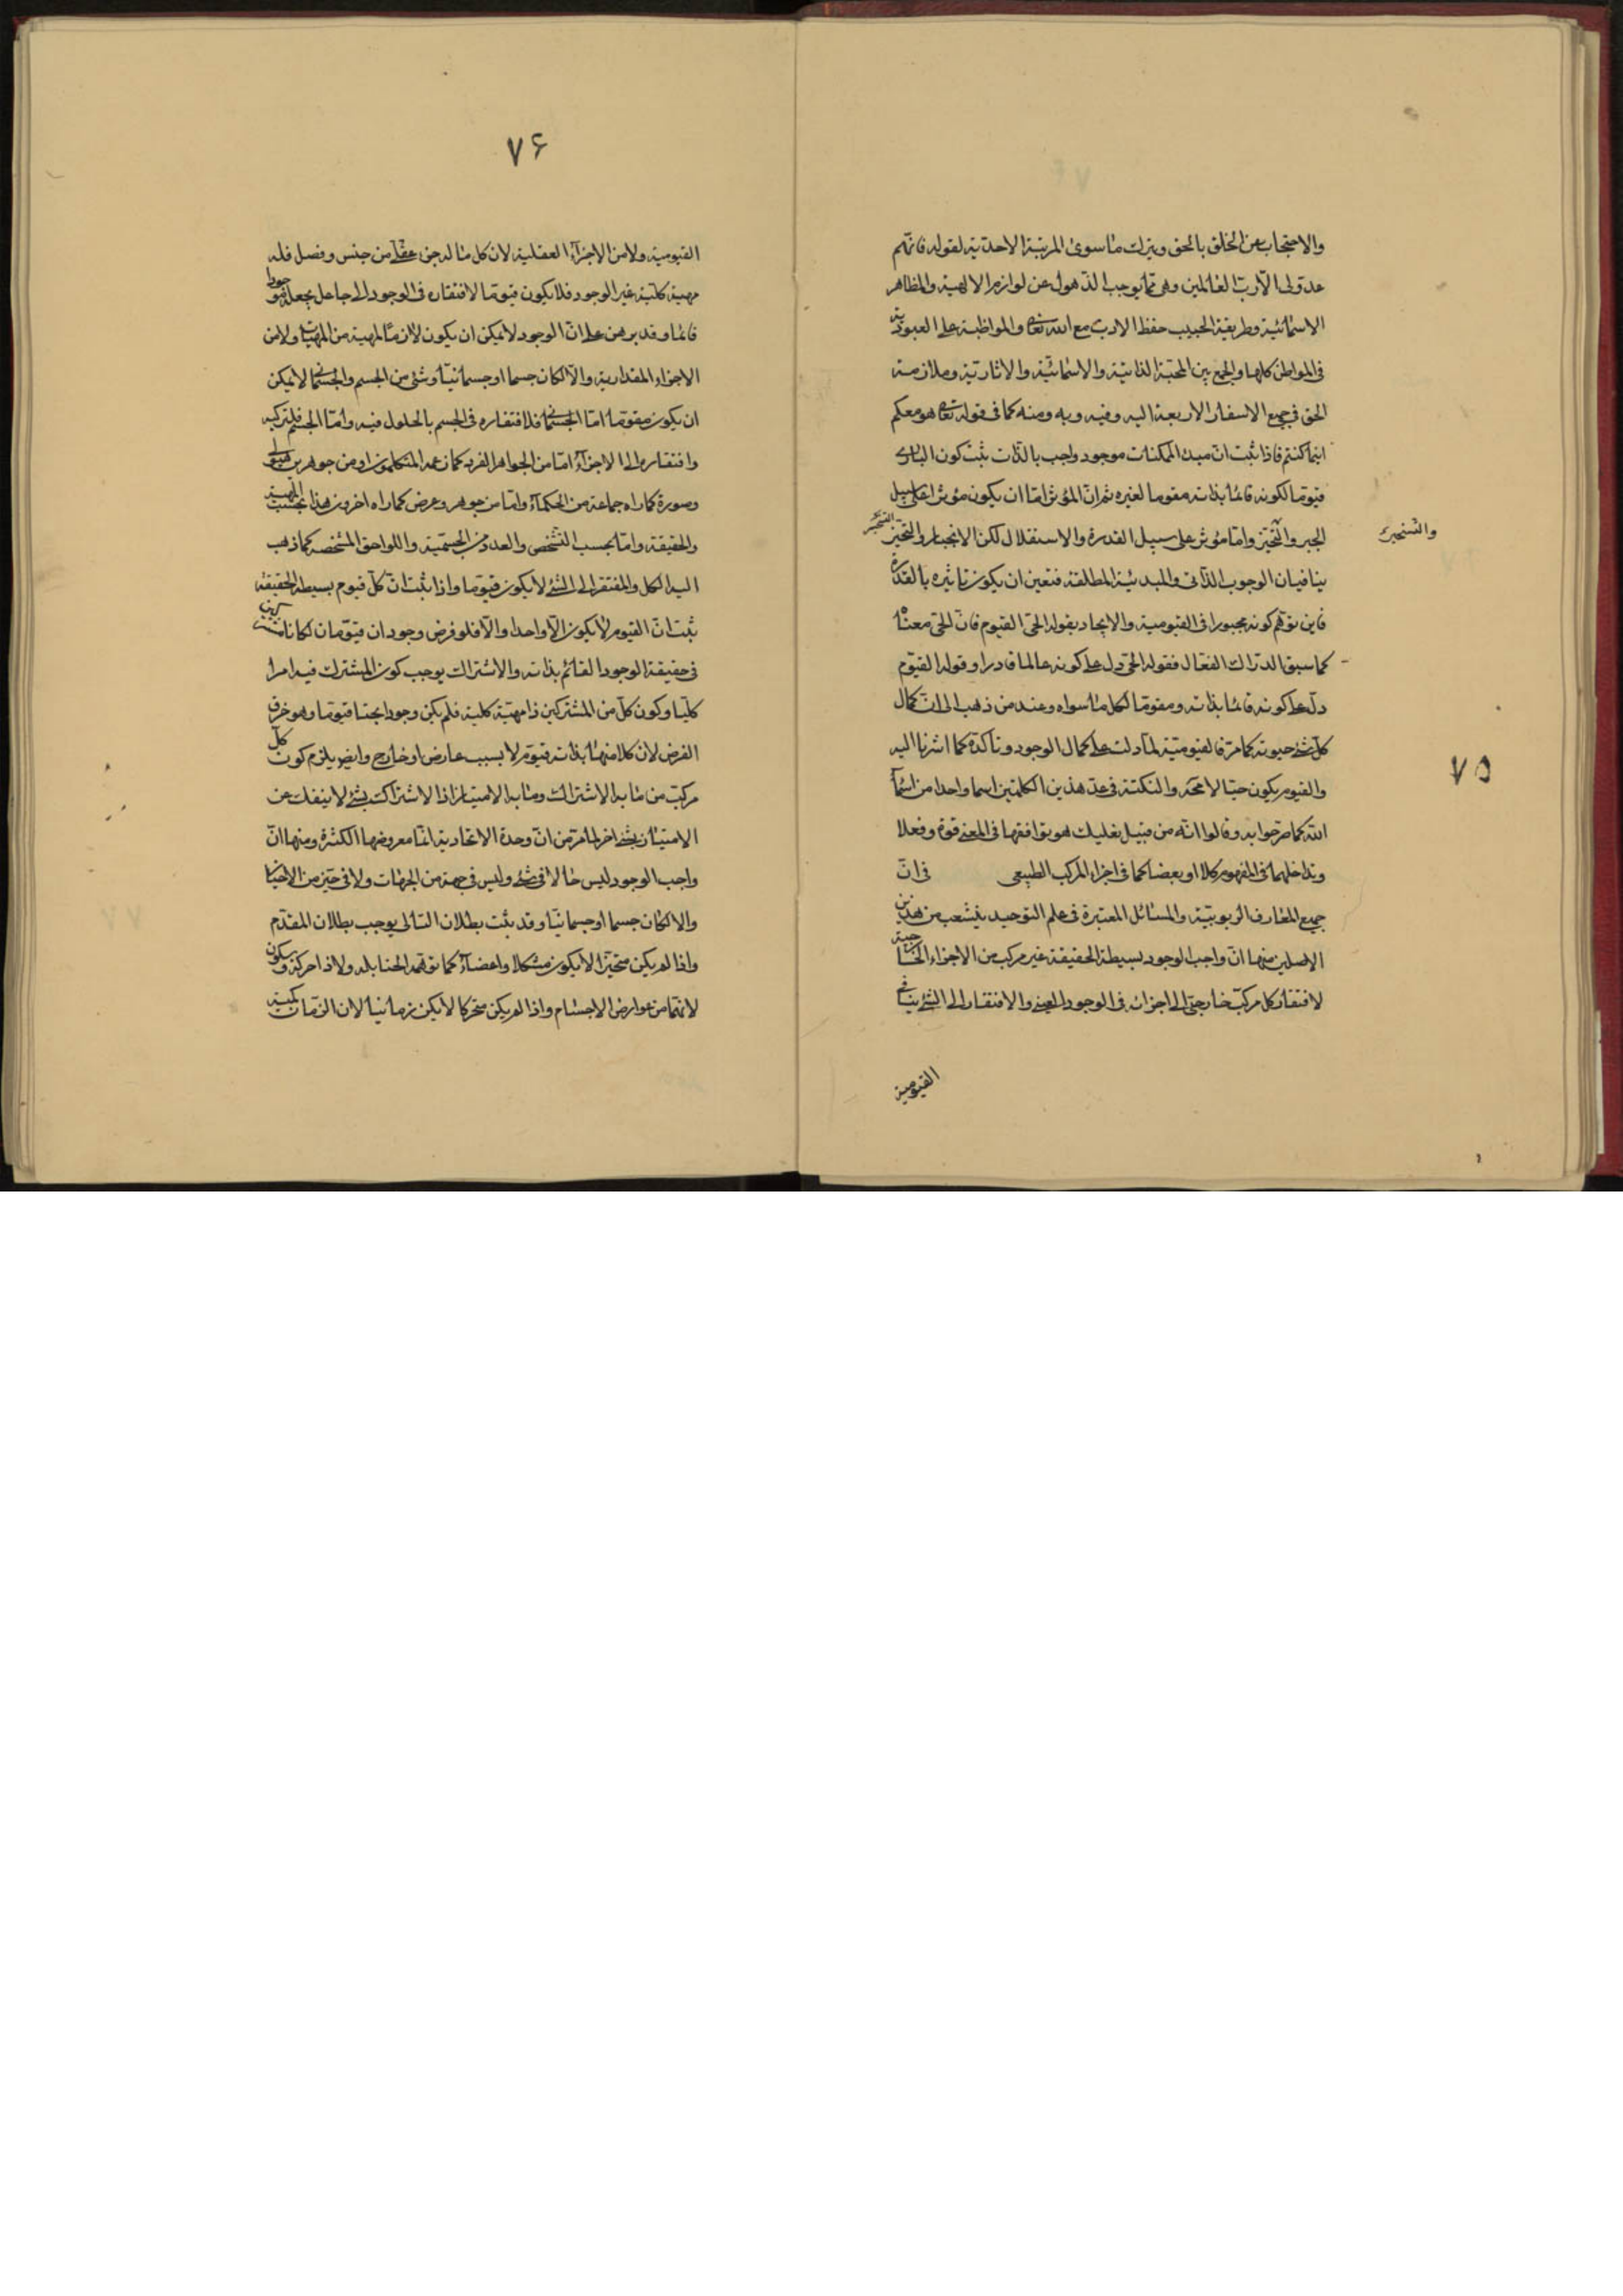 والاحتجاب عن الخلق بالحق ويترك ما سوى المرتبة الاحدية لقوله فانهم
عدو لى الا رب العالمين وهى مما يوجب الذهول عن لوازم الالهية والمظاهر
الاسمائية وطريقة الحبيب حفظ الادب مع الله تعالى والمواظبة على العبودية
فى المواطن كلها والجمع بين المحبة الذاتية والاسمائية والاثارية وملازمة
الحق فى جميع الاسفار الاربعة اليه وفيه وبه ومنه كما فى قوله تعالى هو معكم
اينما كنتم فاذا ثبت ان مبدء الممكنات موجود واجب بالذات ثبت كون البارى
قيوما لكونه قائما بذاته مقوما لغيره ثم ان المؤثر اما ان يكون مؤثرا على سبيل
الجبر والتخيز واما مؤثر على سبيل القدرة والاستقلال لكن الانجبار والتخيز
التسخير
والتسخير
ينافيان الوجوب الذاتى والمبدئية المطلقة فتعين ان يكون تاثيره بالقدرة
فاين توهم كونه مجبورا فى القيومية والايجاد بقوله الحى القيوم فان الحى معناه
كما سبق الدراك الفعال فقوله الحى دل على كونه عالما قادرا وقوله القيوم
دل على كونه قائما بذاته ومقوما لكل ما سواه وعند من ذهب الى ان كمال
كل شئ حيوته كما مر فالقيومية لما دلت على كمال الوجود وتأكده كما اشرنا اليه
والقيوم يكون حيا لا محة والنكتة فى عد هذين الكلمتين اسما واحدا من اسماء
الله كما صرحوا به وقالوا انه من قبيل بعلبك هو توافقهما فى المعنى قوة وفعلا
وتداخلهما فى المفهوم كلا او بعضا كما فى اجزاء المركب الطبيعى فى ان
جميع المعارف الربوبية والمسائل المعتبرة فى علم التوحيد ينشعب من هذين
الاصلين منها ان واجب الوجود بسيطة الحقيقة غير مركب من الاجزاء الخارجية
لافتقار كل مركب خارجى الى اجزائه فى الوجود العينى والافتقار الى الشئ ينافى
القيومية
٧٥
٧۶
القيومية ولا من الاجزاء العقلية لان كل ما له جزء عقلى من جنس وفصل فله
مهية كلية غير الوجود فلا يكون قيوما لافتقاره فى الوجود الى جاعل يجعله موجودا
قائما وقد برهن على ان الوجود لا يمكن ان يكون لازما لمهية من المهيات ولا من
الاجزاء المقدارية والا لكان جسما او جسمانيا وشئ من الجسم والجسمانى لا يمكن
ان يكون مقوما اما الجسمانى فلافتقاره فى الجسم بالحلول فيه واما الجسم فلتركبه
وافتقاره الى الاجزاء اما من الجواهر الفردة كما زعمه المتكلمون او من جوهرين هيولى
وصورة كما راه جماعة من الحكماء واما من جوهر وعرض كما راه اخرون هذا بحسب المهية
والحقيقة واما بحسب التشخص والعدد فمن الجسمية واللواحق المشخصة كما ذهب
اليه الكل والمفتقر الى الشئ لا يكون قيوما واذا ثبت ان كل قيوم بسيطة الحقيقة
ثبت ان القيوم لا يكون الا واحدا والا فلو فرض وجود ان قيومان لكانا مشتركين
فى حقيقة الوجود القائم بذاته والاشتراك يوجب كون المشترك فيه امرا
كليا وكون كل من المشتركين ذا مهية كلية فلم يكن وجودا بحتا قيوما وهو خرق
الفرض لان كلا منهما بذاته قيوم لا بسبب عارض او خارج وايض يلزم كون كل
مركب من ما به الاشتراك وما به الامتياز اذا الاشتراك بشئ لا ينفك عن
الامتياز بشئ اخر لما مر من ان وحدة الاتحادية انما معروضها الكثرة ومنها ان
واجب الوجود ليس حالا فى شئ وليس فى جهة من الجهات ولا فى حيز من الاحياز
والا لكان جسما او جسمانيا وقد ثبت بطلان التالى يوجب بطلان المقدم
واذا لم يكن متحيزا لا يكون مشكلا واعضاء كما توهمه الحنابلة ولا ذا حركة وسكون
لانهما من عوارض الاجسام واذا لم يكن متحركا لا يكن زمانيا لان الزمان كمية